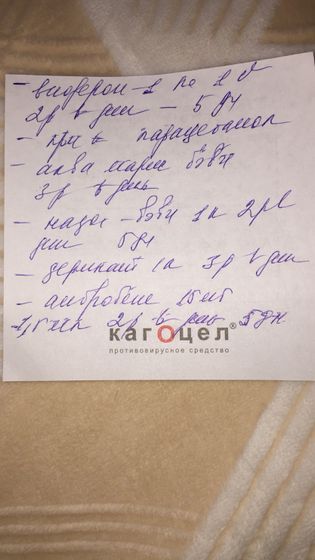 - виферон - 1 по 1 с
2р в день - 5 дн
- при t парацетамол
- аква марис бэби
3р в день
- називин - бэби 1к 2р в
день 5 дн
- зеркалин 1к 3р в день
- амбробене 15 мг
- 1,5 мл 2р в день 5 дн
кагоцел®
противовирусное средство